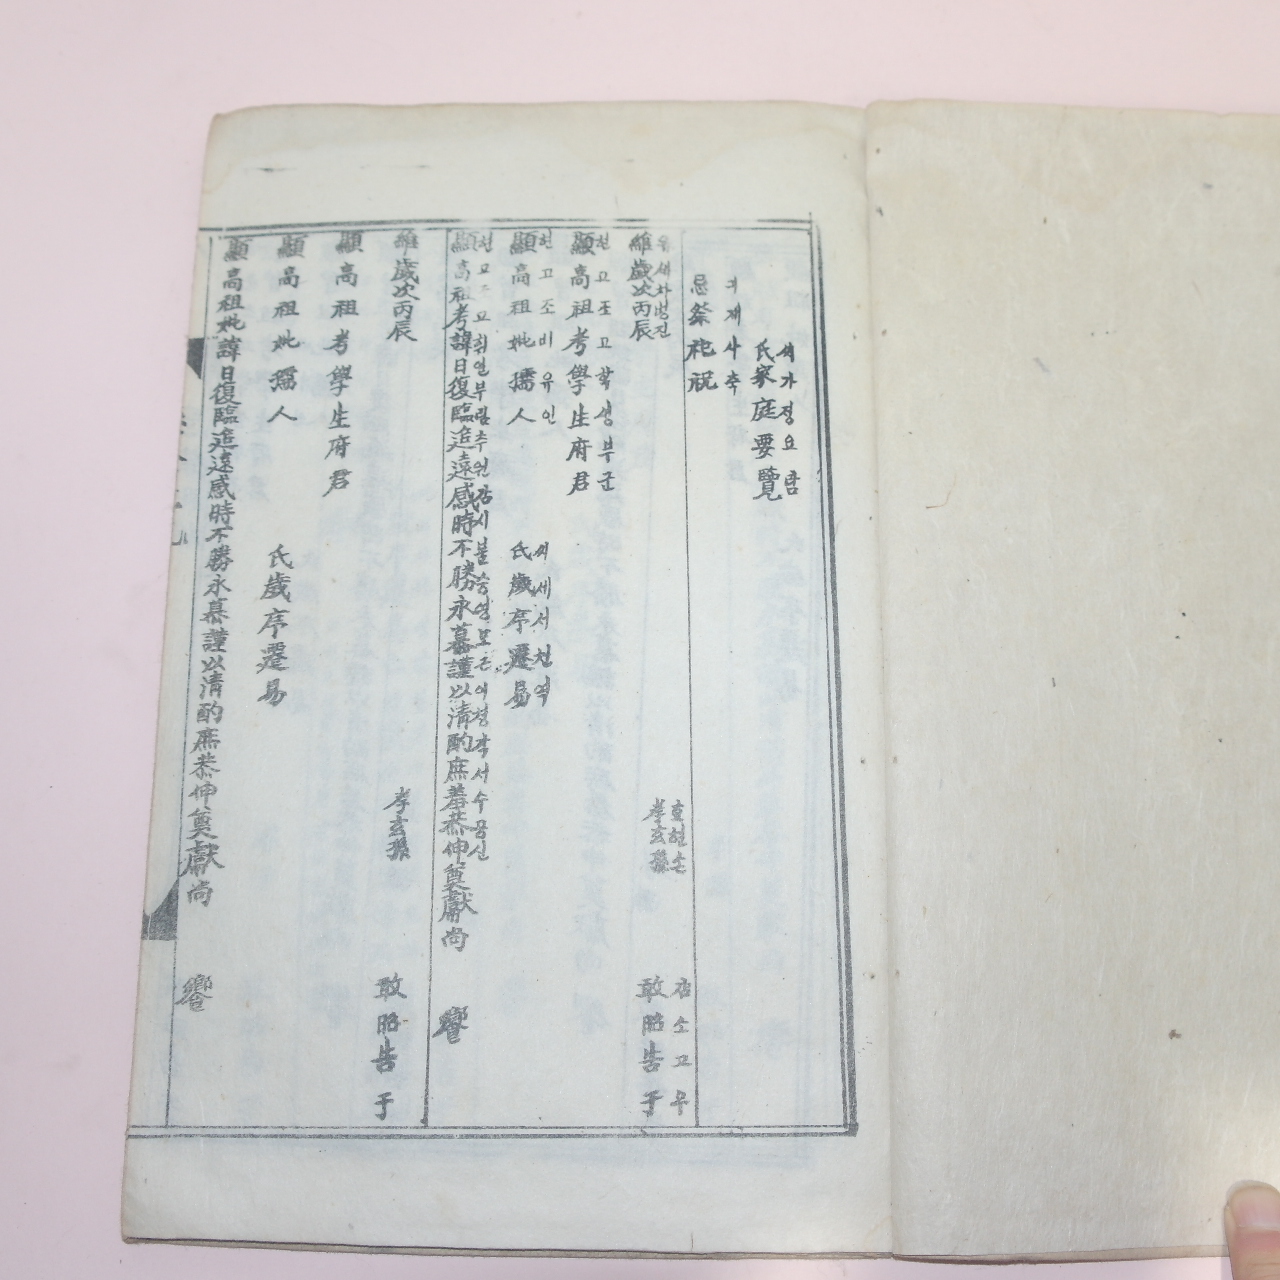 씨가정요람
氏家庭要覽
기제사축
忌祭祀祝
유세차병진 효현손 감소고우
維歲次丙辰 孝玄孫 敢昭告于
현고조고학생부군
顯高祖考學生府君
현고조비유인 씨세서천역
顯高祖妣孺人 氏歲序遷易
현고조고휘일부림추원감시불승영모근이청작서수공신
顯高祖考諱日復臨追遠感時不勝永慕謹以清酌庶羞恭伸奠獻尚 饗
維歲次丙辰 孝玄孫 敢昭告于
顯高祖考學生府君
顯高祖妣孺人 氏歲序遷易
顯高祖妣諱日復臨追遠感時不勝永慕謹以清酌庶恭伸奠獻尚 饗